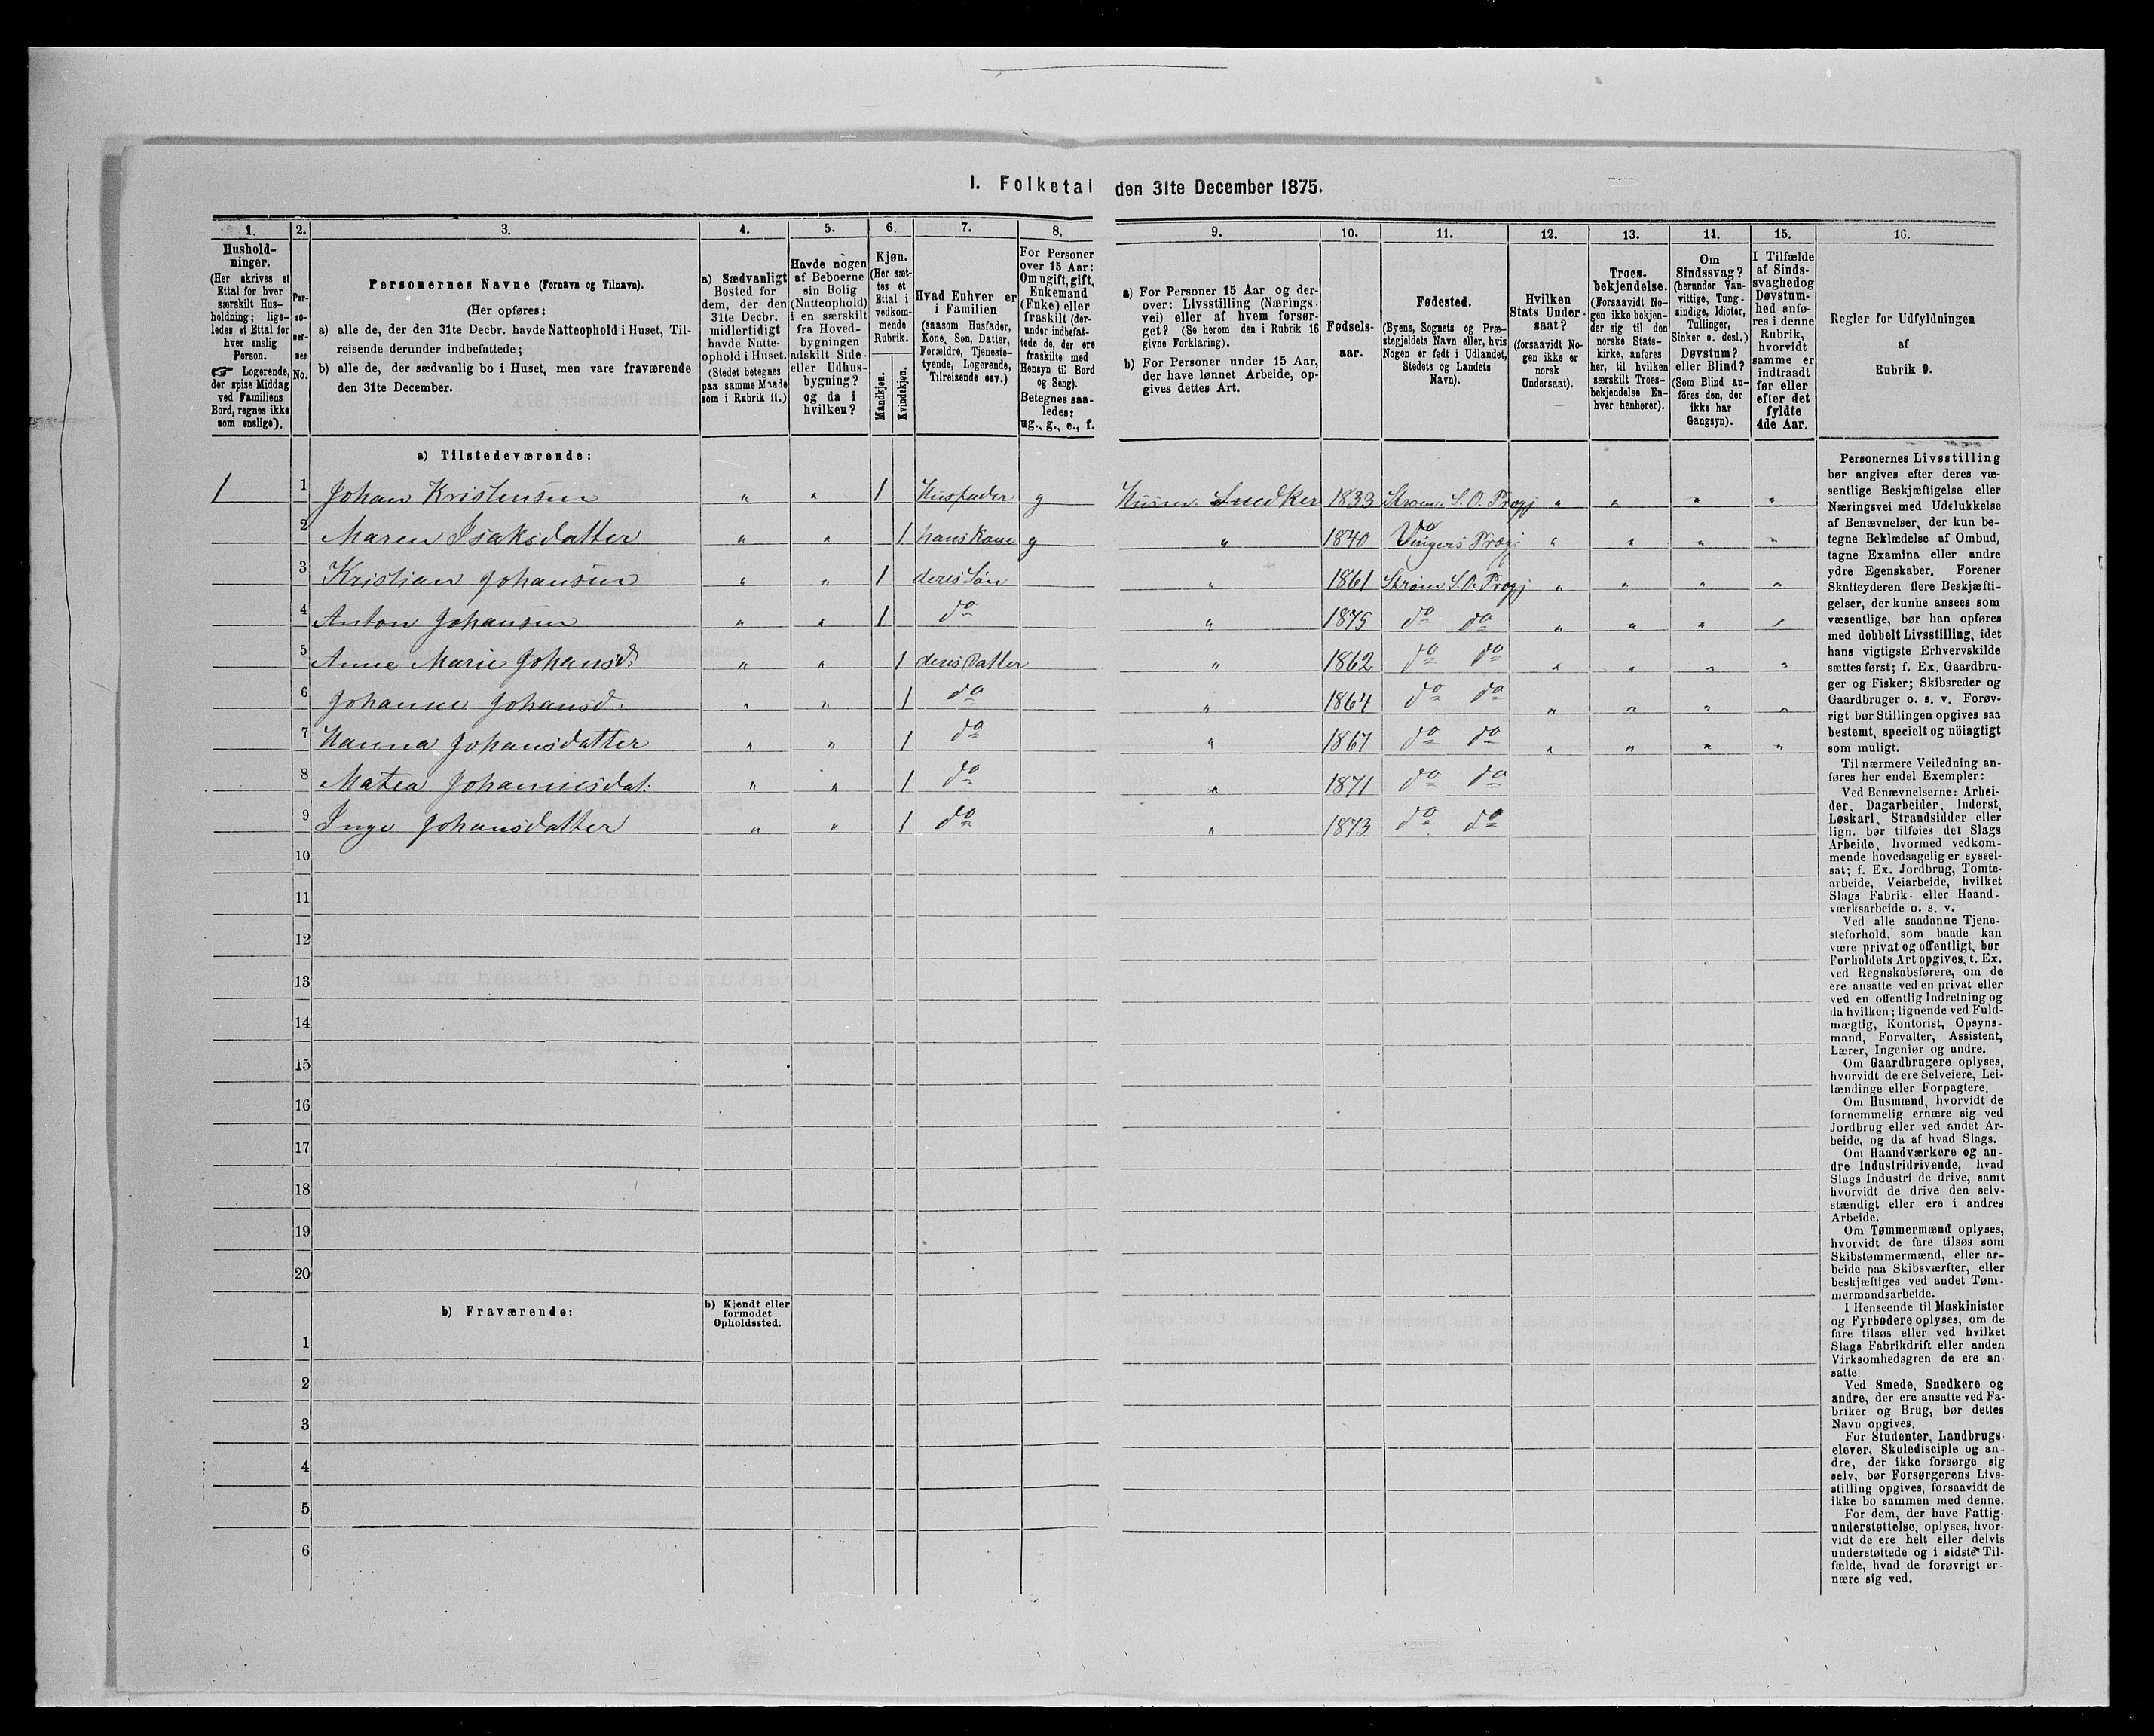 I. Folketal den 31te December 1875.
1. 2. 3. 4. 5. 6. 7. 8. 9. 10. 11. 12. 13. 14. 15. 16.
Hushold-
ninger.
(Her skrives et
Ettal for hver
særskilt Hus-
holdning; lige-
ledes et Ettal for
hver enslig
Person.
☞ Logerende,
der spise Middag
ved Familiens
Bord, regnes ikke
som enslige).
Per-
so-
ner-
nes
No.
Personernes Navne (Fornavn og Tilnavn).
(Her opføres:
a) alle de, der den 31te Decbr. havde Natteophold i Huset, Til-
reisende derunder indbefattede;
b) alle de, der sædvanlig bo i Huset, men vare fraværende
den 31te December.
a) Sædvanligt
Bosted for
dem, der den
31te Decbr.
midlertidigt
havde Natte-
ophold i Huset.
(Stedet betegnes
paa samme Maade
som i Rubrik 11.)
Havde nogen
af Beboerne
sin Bolig
(Natteophold)
i en særskilt
fra Hoved-
bygningen
adskilt Side-
eller Udhus-
bygning?
og da i
hvilken?
Kjøn.
(Her sæt-
tes et
Ettal i
vedkom-
mende
Rubrik.
Mandkjøn.
Kvindekjøn.
Hvad Enhver er
i Familien
(saasom Husfader,
Kone, Søn, Datter,
Forældre, Tjeneste-
tyende, Logerende,
Tilreisende osv.)
For Personer
over 15 Aar:
Om ugift, gift,
Enkemand
(Enke) eller
fraskilt (der-
under indbefat-
tede de, der ere
fraskilte med
Hensyn til Bord
og Seng).
Betegnes saa-
ledes:
ug., g., e., f.
a) For Personer 15 Aar og der-
over: Livsstilling (Nærings-
vei) eller af hvem forsør-
get? (Se herom den i Rubrik 16
givne Forklaring).
b) For Personer under 15 Aar,
der have lønnet Arbeide, op-
gives dettes Art.
Fødsels-
aar.
Fødested.
(Byens, Sognets og Præ-
stegjeldets Navn eller, hvis
Nogen er født i Udlandet,
Stedets og Landets
Navn).
Hvilken
Stats Under-
saat?
(forsaavidt No-
gen ikke er
norsk
Undersaat).
Troes-
bekjendelse.
(Forsaavidt No-
gen ikke bekjen-
der sig til den
norske Stats-
kirke, anføres
her, til hvilken
særskilt Troes-
bekjendelse En-
hver henhører).
Om
Sindssvag?
(herunder Van-
vittige, Tung-
sindige, Idioter,
Tullinger,
Sinker o. desl.)
Døvstum?
eller Blind?
(Som Blind an-
føres den, der
ikke har
Gangsyn).
I Tilfælde
af Sinds-
svaghed og
Døvstum-
hed anfø-
res i denne
Rubrik,
hvorvidt
samme er
indtraadt
før eller
efter det
fyldte
4de Aar.
Regler for Udfyldningen
af
Rubrik 9.
a) Tilstedeværende:
1 1 Johan Kristensen " " 1 Husfader g Husm. Snedker 1833 Strøm. S. O. Prægj " " " "
2 Maren Isaksdatter " " 1 hans Kone g " 1840 Vingers Prægj " " " "
3 Kristian Johansen " " 1 deres Søn " 1861 Strøm S. O. Prægj " " " "
4 Anton Johansen " " 1 do " 1875 do do " " " "
5 Anne Marie Johansd: " " 1 deres Datter " 1862 do do " " " "
6 Johanne Johansd. " " 1 do " 1864 do do " " " "
7 Hanna Johansdatter " " 1 do " 1867 do do " " " "
8 Matea Johannesdat: " " 1 do " 1871 do do
9 Inge Johansdatter " " 1 do " 1873 do do
10
11
12
13
14
15
16
17
18
19
20
b) Fraværende:
b) Kjendt eller
formodet
Opholdssted.
1
2
3
4
5
6
Personernes Livsstilling
bør angives efter deres væ-
sentlige Beskjæftigelse eller
Næringsvei med Udelukkelse
af Benævnelser, der kun be-
tegne Beklædelse af Ombud,
tagne Examina eller andre
ydre Egenskaber. Forener
Skatteyderen flere Beskjæfti-
gelser, der kunne ansees som
væsentlige, bør han opføres
med dobbelt Livsstilling, idet
hans vigtigste Erhvervskilde
sættes først; f. Ex. Gaardbru-
ger og Fisker; Skibsreder og
Gaardbruger o. s. v. Forøv-
rigt bør Stillingen opgives saa
bestemt, specielt og nöiagtigt
som muligt.
Til nærmere Veiledning an-
føres her endel Exempler:
Ved Benævnelserne: Arbei-
der, Dagarbeider, Inderst,
Løskarl, Strandsidder eller
lign. bør tilføies det Slags
Arbeide, hvormed vedkom-
mende hovedsagelig er syssel-
sat; f. Ex. Jordbrug, Tomte-
arbeide, Veiarbeide, hvilket
Slags Fabrik- eller Haand-
værksarbeide o. s. v.
Ved alle saadanne Tjene-
steforhold, som baade kan
være privat og offentligt, bør
Forholdets Art opgives, t. Ex.
ved Regnskabsførere, om de
ere ansatte ved en privat eller
ved en offentlig Indretning og
da hvilken; lignende ved Fuld-
mægtig, Kontorist, Opsyns-
mand, Forvalter, Assistent,
Lærer, Ingeniør og andre.
Om Gaardbrugere oplyses,
hvorvidt de ere Selveiere, Lei-
lændinge eller Forpagtere.
Om Husmænd, hvorvidt de
fornemmelig ernære sig ved
Jordbrug eller ved andet Ar-
beide, og da af hvad Slags.
Om Haandværkere og an-
dre Industridrivende, hvad
Slags Industri de drive, samt
hvorvidt de drive den selv-
stændigt eller ere i andres
Arbeide.
Om Tømmermænd oplyses,
hvorvidt de fare tilsøs som
Skibstømmermænd, eller ar-
beide paa Skibsværfter, eller
beskjæftiges ved andet Tøm-
mermandsarbeide.
I Henseende til Maskinister
og Fyrbødere oplyses, om de
fare tilsøs eller ved hvilket
Slags Fabrikdrift eller anden
Virksomhedsgren de ere an-
satte.
Ved Smede, Snedkere og
andre, der ere ansatte ved Fa-
briker og Brug, bør dettes
Navn opgives.
For Studenter, Landbrugs-
elever, Skoledisciple og an-
dre, der ikke forsørge sig
selv, bør Forsørgerens Livs-
stilling opgives, forsaavidt de
ikke bo sammen med denne.
For dem, der have Fattig-
understøttelse, oplyses, hvor-
vidt de ere helt eller delvis
understøttede og i sidste Til-
fælde, hvad de forøvrigt er-
nære sig ved.